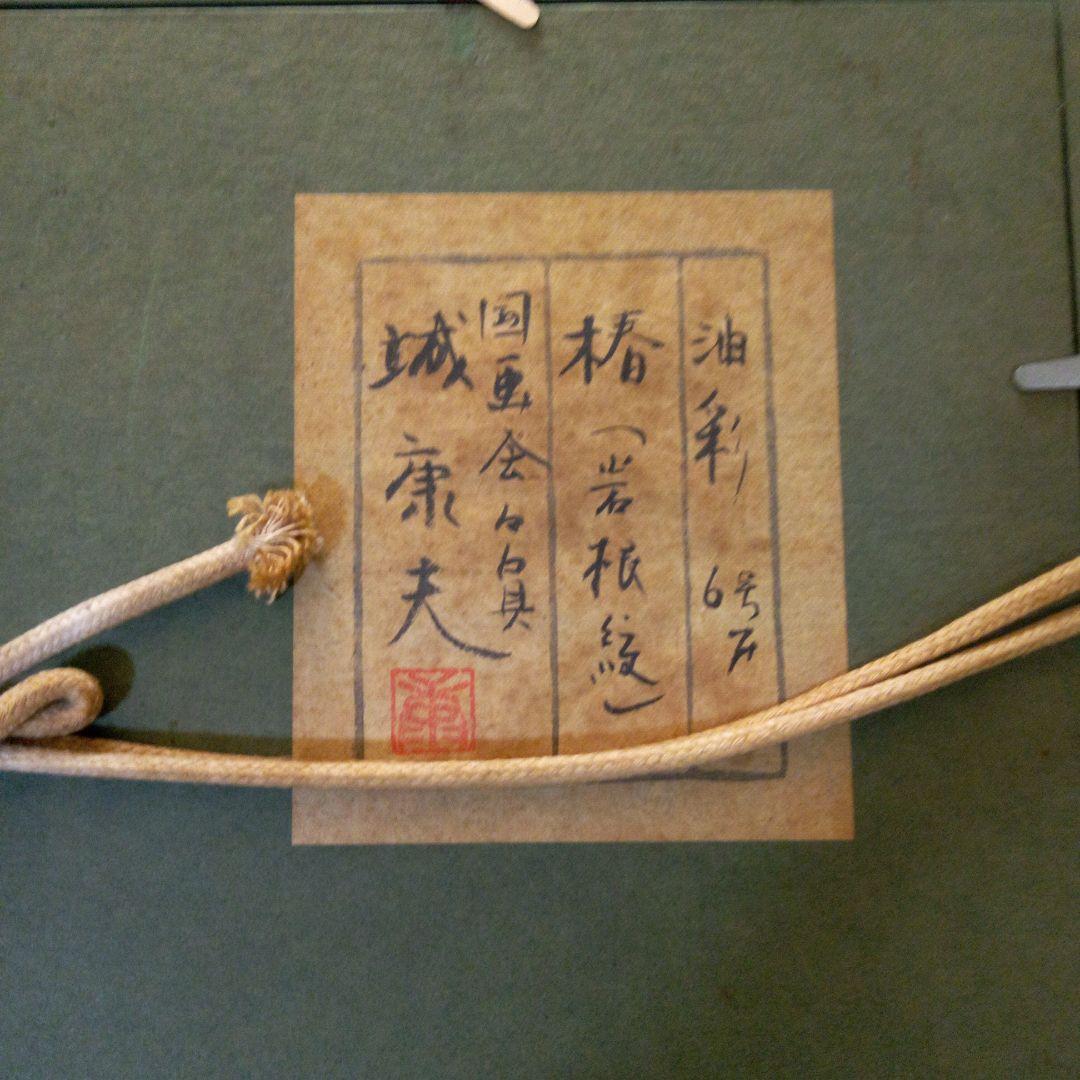 油彩 6号F
椿(岩根絞)
国画会々員
城康夫